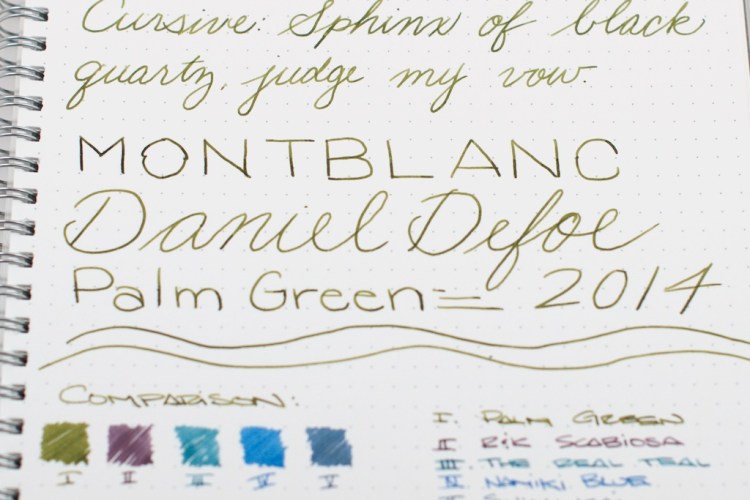 Cursive: Sphinx of black
quartz, judge my vow.
MONTBLANC
Daniel Defoe
Palm Green 2014
COMPARISON:
I II III IV V
I. PALM GREEN
II R&K SCABIOSA
III. THE REAL TEAL
IV. NAMIKI BLUE